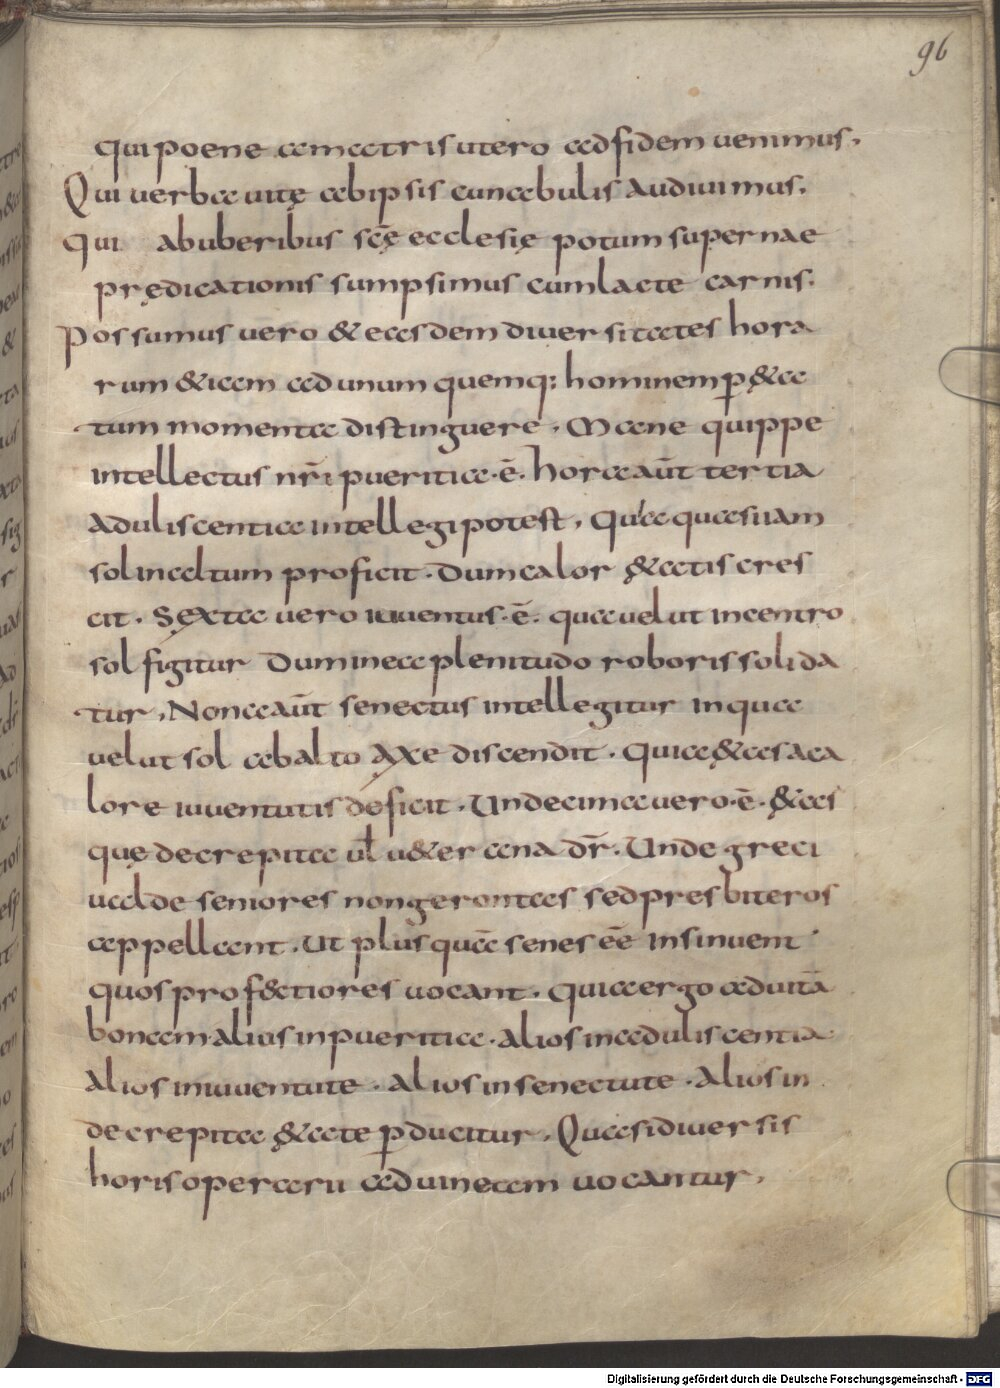 96
qui poene a matris utero ad fidem uenimus.
Qui uerba uitę ab ipsis cunabulis audiuimus.
Qui ab uberibus scę̄ ecclesię potum supernae
prędicationis sumpsimus cum lacte carnis.
Possumus uero & easdem diuersitates hora
rum & iam ad unum quemq; hominem p̱ &a
tum momenta distinguere. Mane quippe
intellectus nr̄i pueritia·ē· hora aūt tertia
aduliscentia intellegi potest, Quia quasi iam
sol in altum proficit. Dum calor &atis cres
cit. Sexta uero iuuentus·ē· quae uelut in centro
sol figitur Dum in ea plenitudo roboris solida
tur, Nona aūt senectus intellegitur in qua
uelut sol ab alto axe discendit. Quia &as a ca
lore iuuentutis deficit. Undecima uero·ē· &as
quę decrepita ul̄ u&erana dr̄. Unde greci
ualde seniores non gerontas sed presbiteros
appellant. Ut plus quā senes eē̄ insinuent
quos prof&tiores uocant. Quia ergo ad uitā
bonam alius in pueritia. alios in aduliscentia
alios in iuuentute. alios in senectute. alios in
decrepita &ate p̱ducitur. Quasi diuersis
horis operarii ad uineam uocantur.
Digitalisierung gefördert durch die Deutsche Forschungsgemeinschaft - DFG